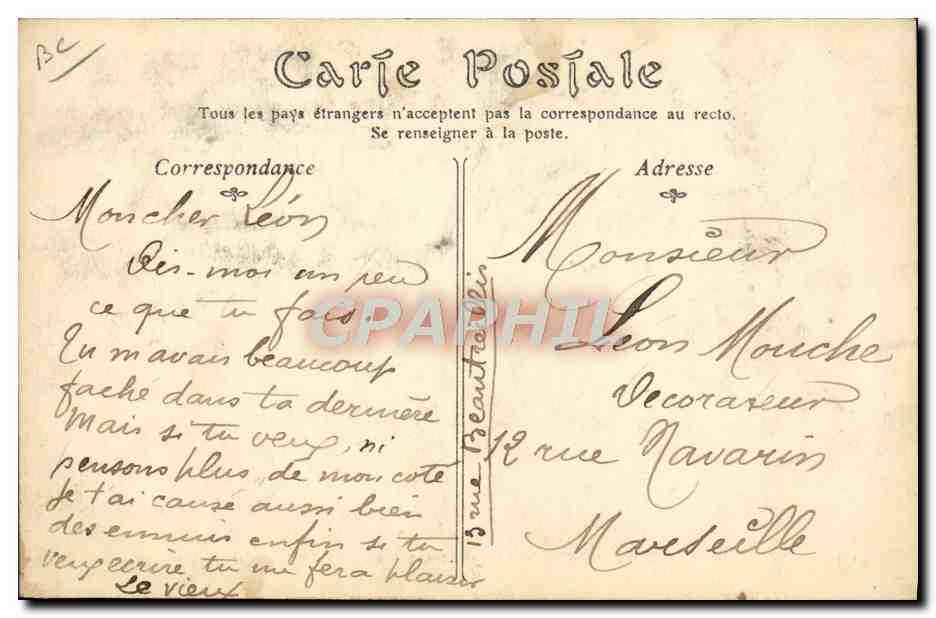 BC
Carte Postale
Tous les pays étrangers n'acceptent pas la correspondance au recto.
Se renseigner à la poste.
Correspondance
Mon cher Léon
Dis-moi un peu
ce que tu fais.
Tu m'avais beaucoup
faché dans ta dernière
Mais si tu veux, ni
pensons plus, de mon coté
je t'ai causé aussi bien
des ennuis enfin si tu
veux ecrire tu me fera plaisir
Le vieux
13 rue Beautreillis
Adresse
Monsieur
Léon Mouche
Decorateur
12 rue Navarin
Marseille
CPAPHIL